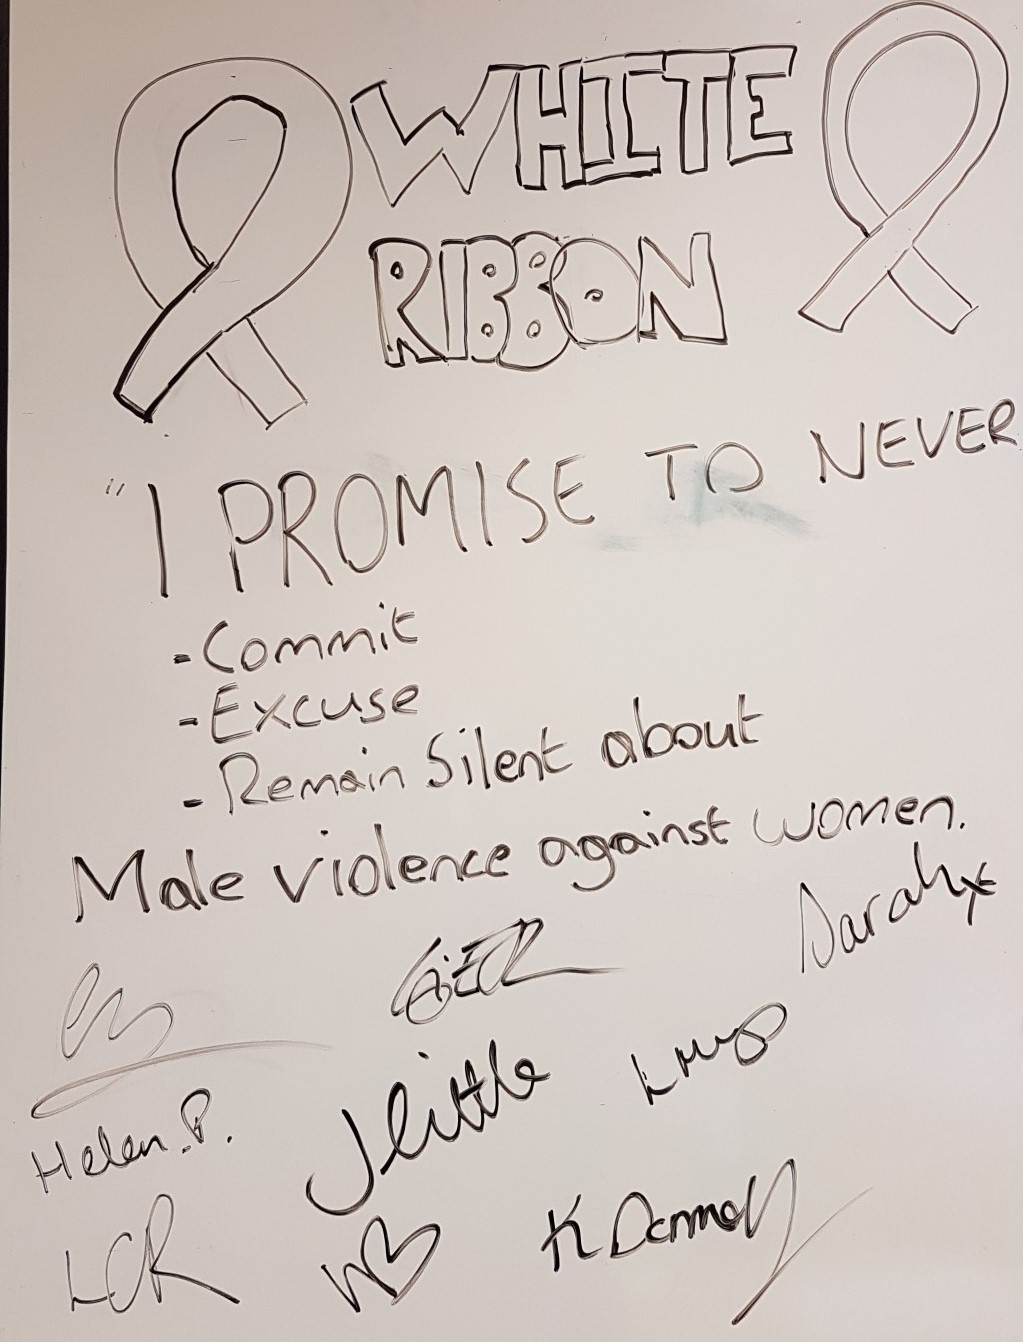 WHITE
RIBBON
"I PROMISE TO NEVER
- Commit
- Excuse
- Remain Silent about
Male violence against women.
Sarah x
Helen.P.
J little
LCR